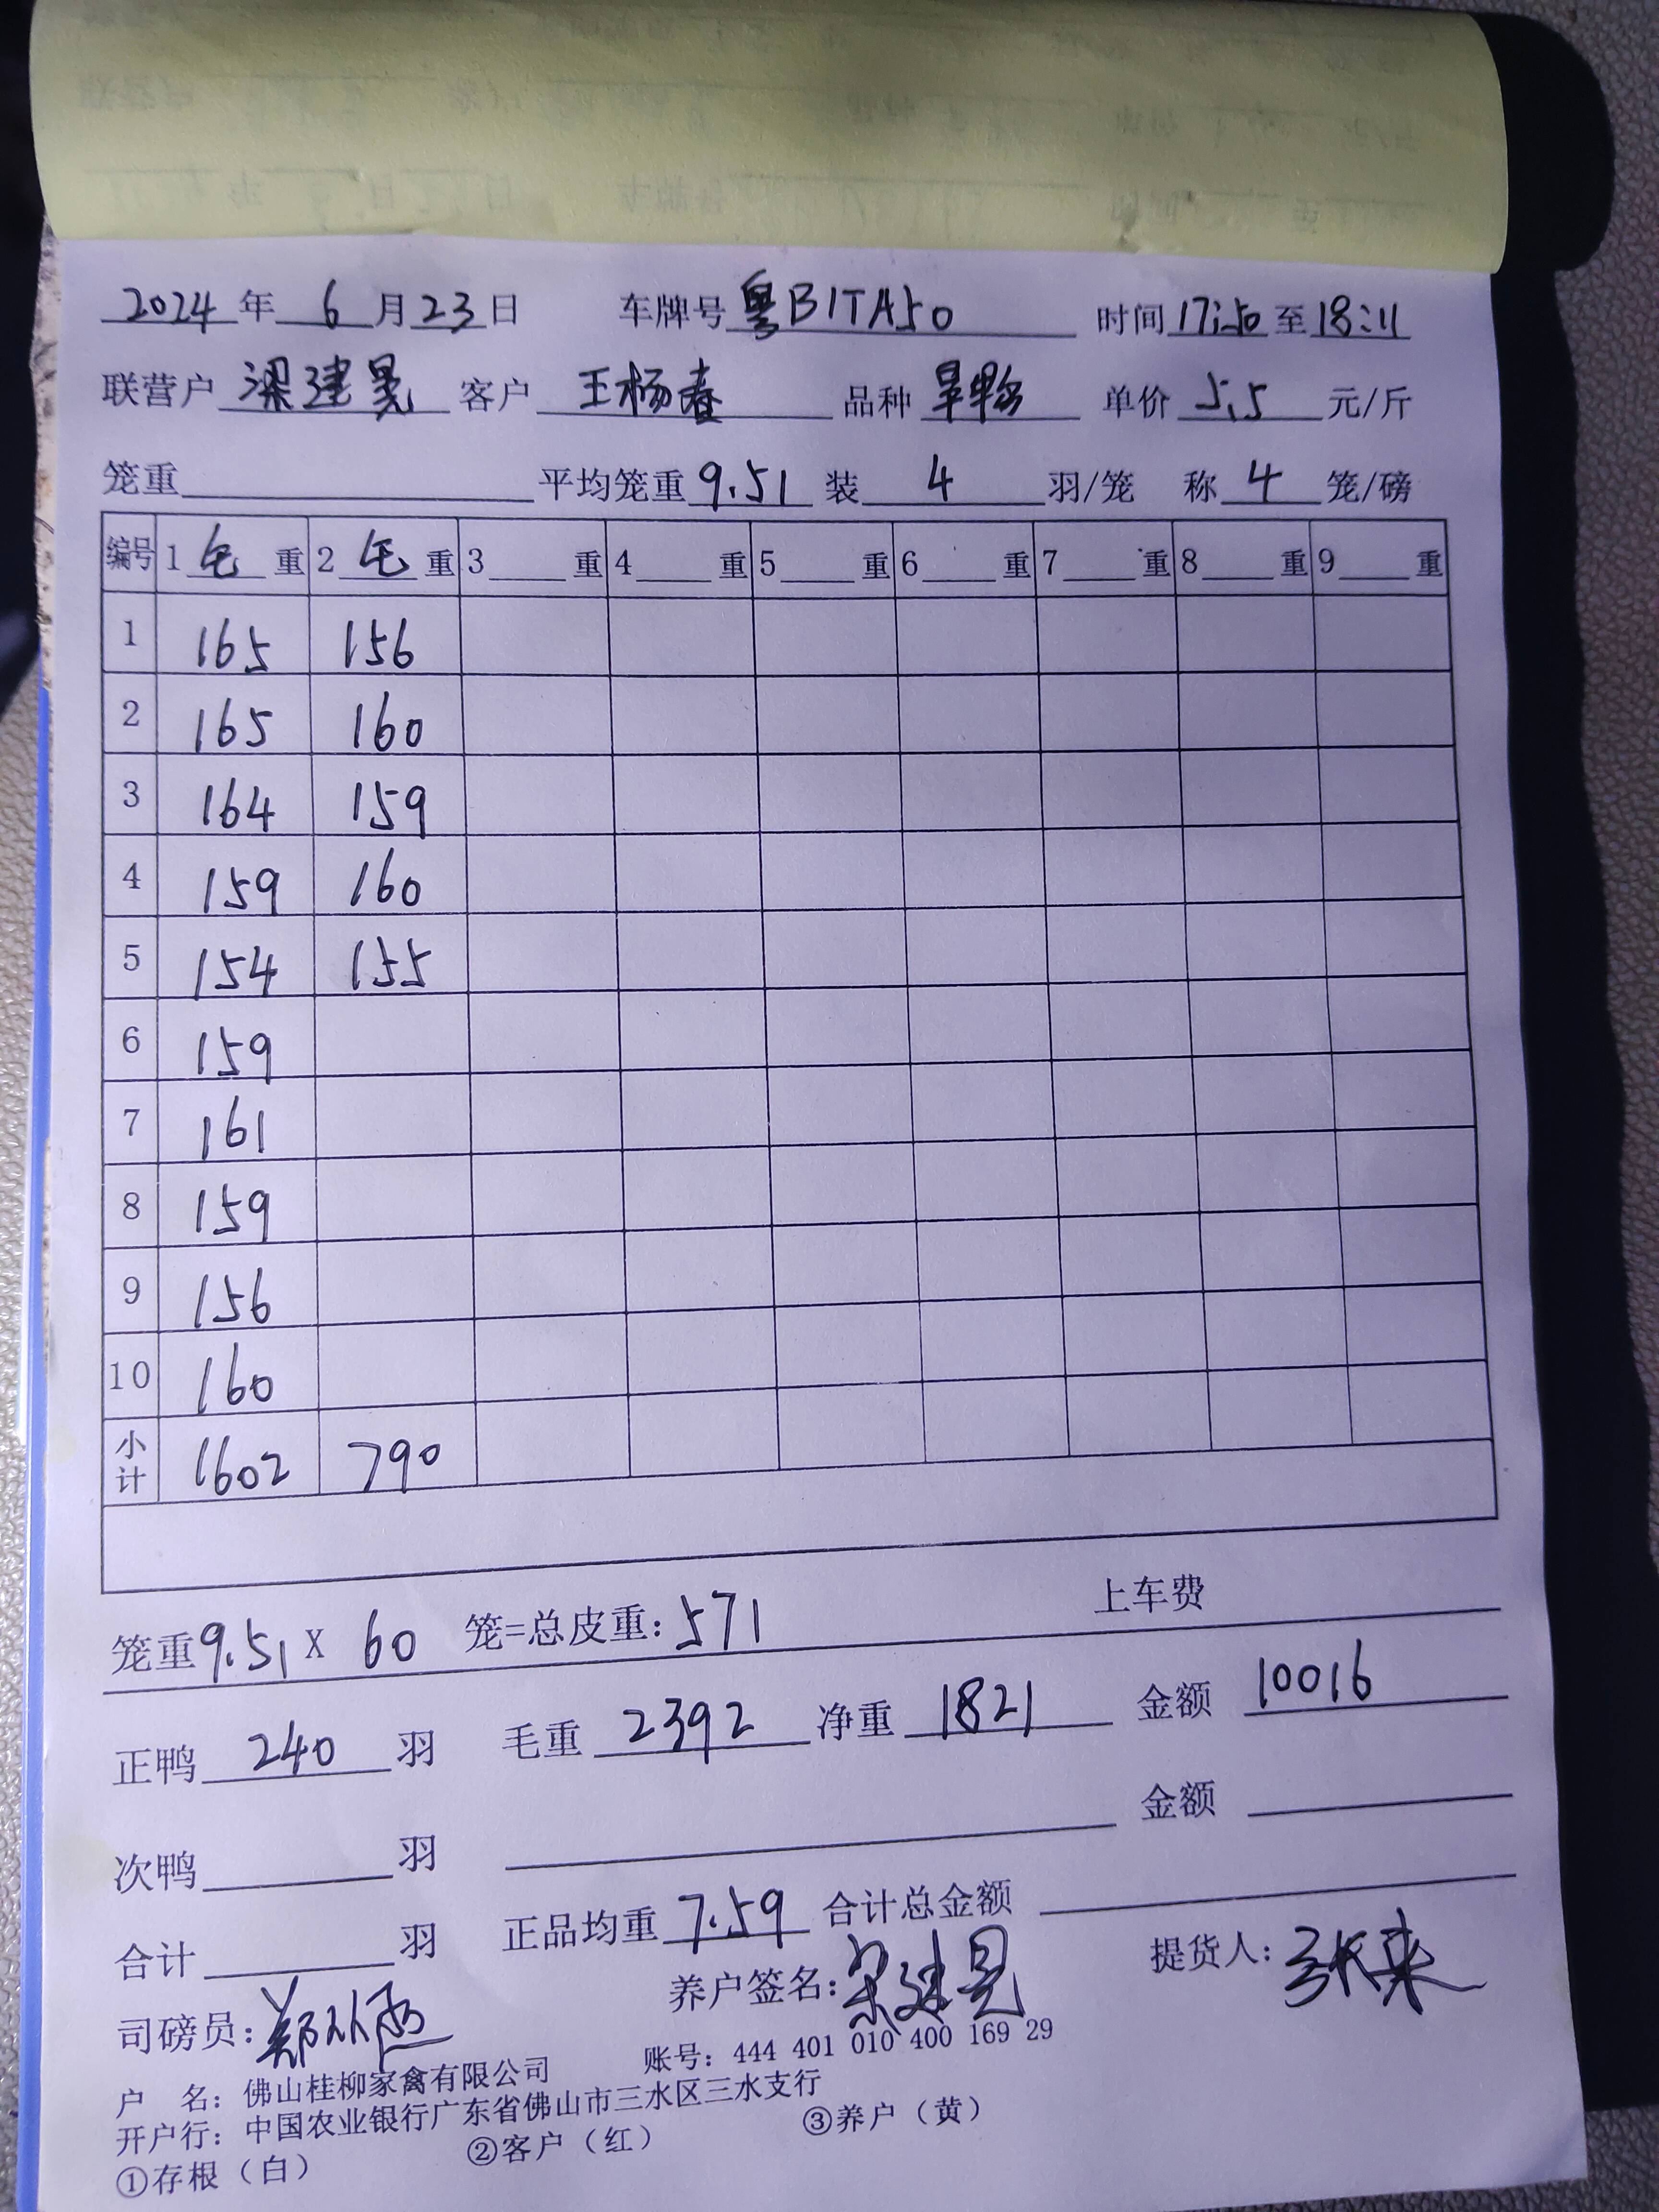 2024年6月23日 车牌号粤B1TA50 时间17:50至18:11
联营户梁建晃 客户王杨春 品种旱鸭 单价5.5元/斤
笼重 平均笼重9.51 装4羽/笼 称4笼/磅
编号 1毛重 2毛重 3重 4重 5重 6重 7重 8重 9重
1 165 156
2 165 160
3 164 159
4 159 160
5 154 155
6 159
7 161
8 159
9 156
10 160
小计 1602 790
笼重9.51X60笼=总皮重:571 上车费
正鸭240羽 毛重2392 净重1821 金额10016
次鸭 羽 金额
合计 羽 正品均重7.59 合计总金额
司磅员: 养户签名: 提货人:
户 名: 佛山桂柳家禽有限公司 账号: 444 401 010 400 169 29
开户行: 中国农业银行广东省佛山市三水区三水支行
①存根（白） ②客户（红） ③养户（黄）